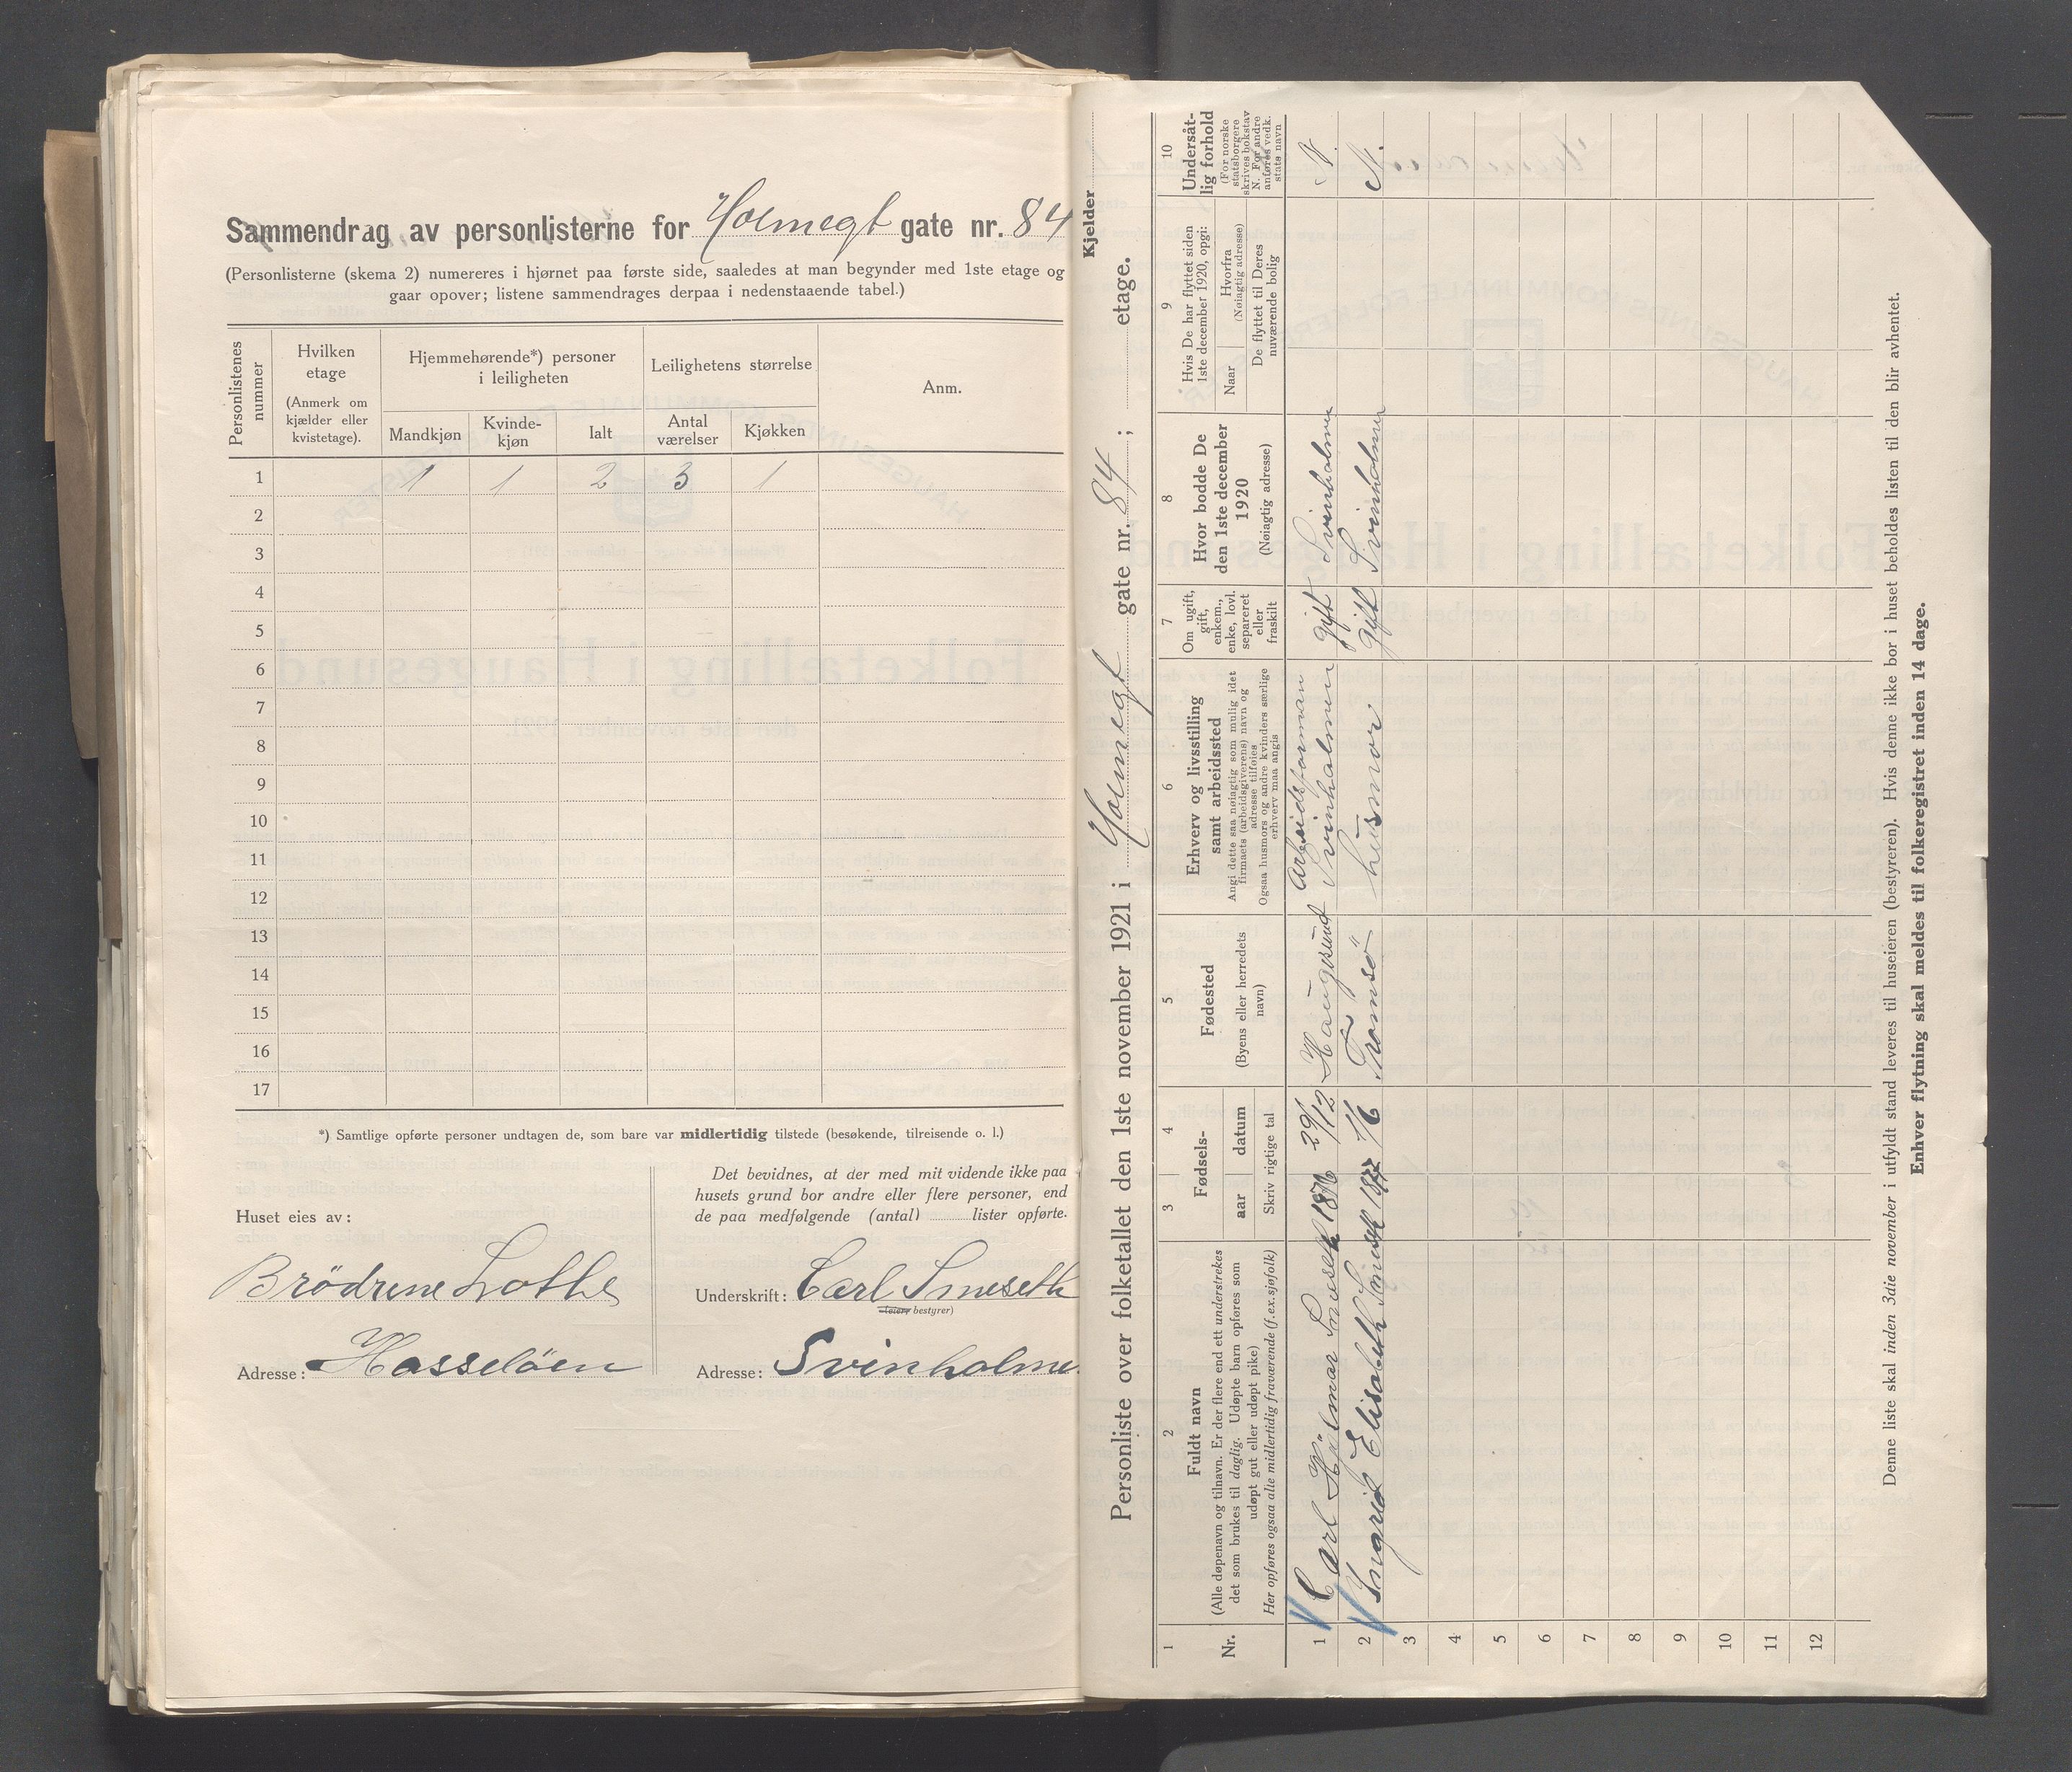 Sammendrag av personlisterne for Holmegt gate nr. 84
(Personlisterne (skema 2) numereres i hjørnet paa første side, saaledes at man begynder med 1ste etage og
gaar opover; listene sammendrages derpaa i nedenstaaende tabel.)
Personlistenes nummer
Hvilken etage
(Anmerk om kjælder eller kvistetage).
Hjemmehørende*) personer i leiligheten
Leilighetens størrelse
Anm.
Mandkjøn
Kvinde-kjøn
Ialt
Antal værelser
Kjøkken
1 1 1 2 3 1
2
3
4
5
6
7
8
9
10
11
12
13
14
15
16
17
*) Samtlige opførte personer undtagen de, som bare var midlertidig tilstede (besøkende, tilreisende o. l.)
Huset eies av:
Brödrene Lothe
Adresse: Hasselöen
Det bevidnes, at der med mit vidende ikke paa
husets grund bor andre eller flere personer, end
de paa medfølgende (antal) lister opførte.
Underskrift: Carl Smeseth
(eier, bestyrer)
Adresse: Svinholme
Personliste over folketallet den 1ste november 1921 i Holmegt gate nr. 84 ; etage.
Kjelder
1
Nr.
2
Fuldt navn
(Alle døpenavn og tilnavn. Er der flere end ett understrekes
det som brukes til daglig. Udøpte barn opføres som
udøpt gut eller udøpt pike)
Her opføres ogsaa alle midlertidig fraværende (f. ex. sjøfolk)
3 4
Fødsels-
aar datum
Skriv rigtige tal
5
Fødested
(Byens eller herredets
navn)
6
Erhverv og livsstilling
samt arbeidssted
Angi dette saa nøiagtig som mulig idet
firmaets (arbeidsgiverens) navn og
adresse tilføies
Ogsaa husmors og andre kvinders særlige
erhverv maa angis
7
Om ugift,
gift,
enkem.,
enke, lovl.
separeret
eller
fraskilt
8
Hvor bodde De
den 1ste december
1920
(Nøiagtig adresse)
9
Hvis De har flyttet siden
1ste december 1920, opgi:
Naar
Hvorfra
(Nøiagtig adresse)
De flyttet til Deres
nuværende bolig
10
Undersåt-
lig forhold
(For norske
statsborgere
skrives bokstav
N. For andre
anføres vedk.
stats navn
1 Carl Hjalmar Smeseth 1876 29/12 Haugesund Arbeidsforman Svinholmen gift Svinholmen N.
2 Ingrid Elisabeth Smeseth 1877 /6 Tromsö husmor gift Svinholmen N.
3
4
5
6
7
8
9
10
11
12
Denne liste skal inden 3die november i utfyldt stand leveres til huseieren (bestyreren). Hvis denne ikke bor i huset beholdes listen til den blir avhentet.
Enhver flytning skal meldes til folkeregistret inden 14 dage.